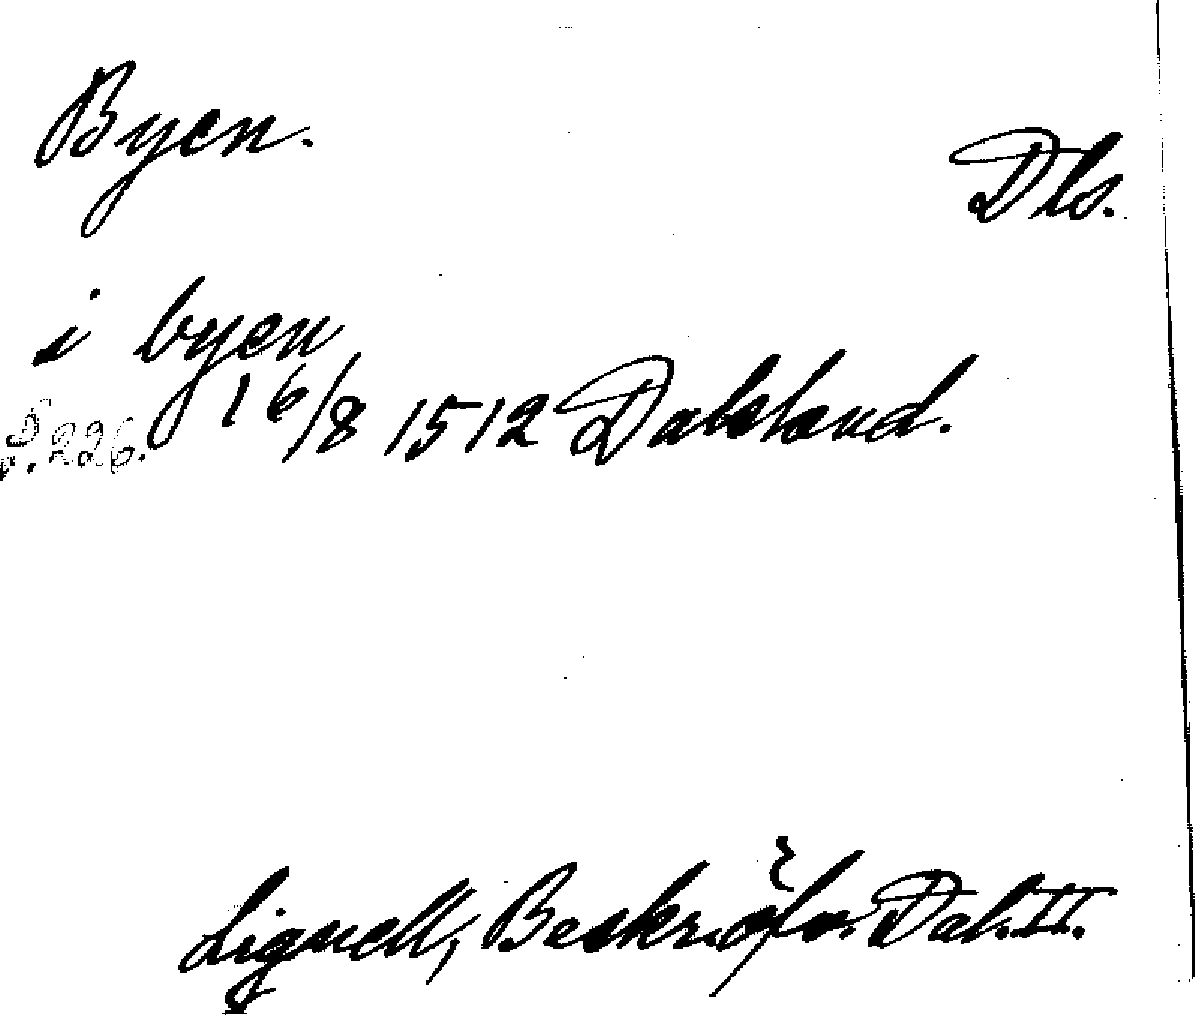 Byen.
Dls.
i byen
16/8 1512 Dalsland.
S. 226.
Lignell, Beskr. öfv. Dal. II.